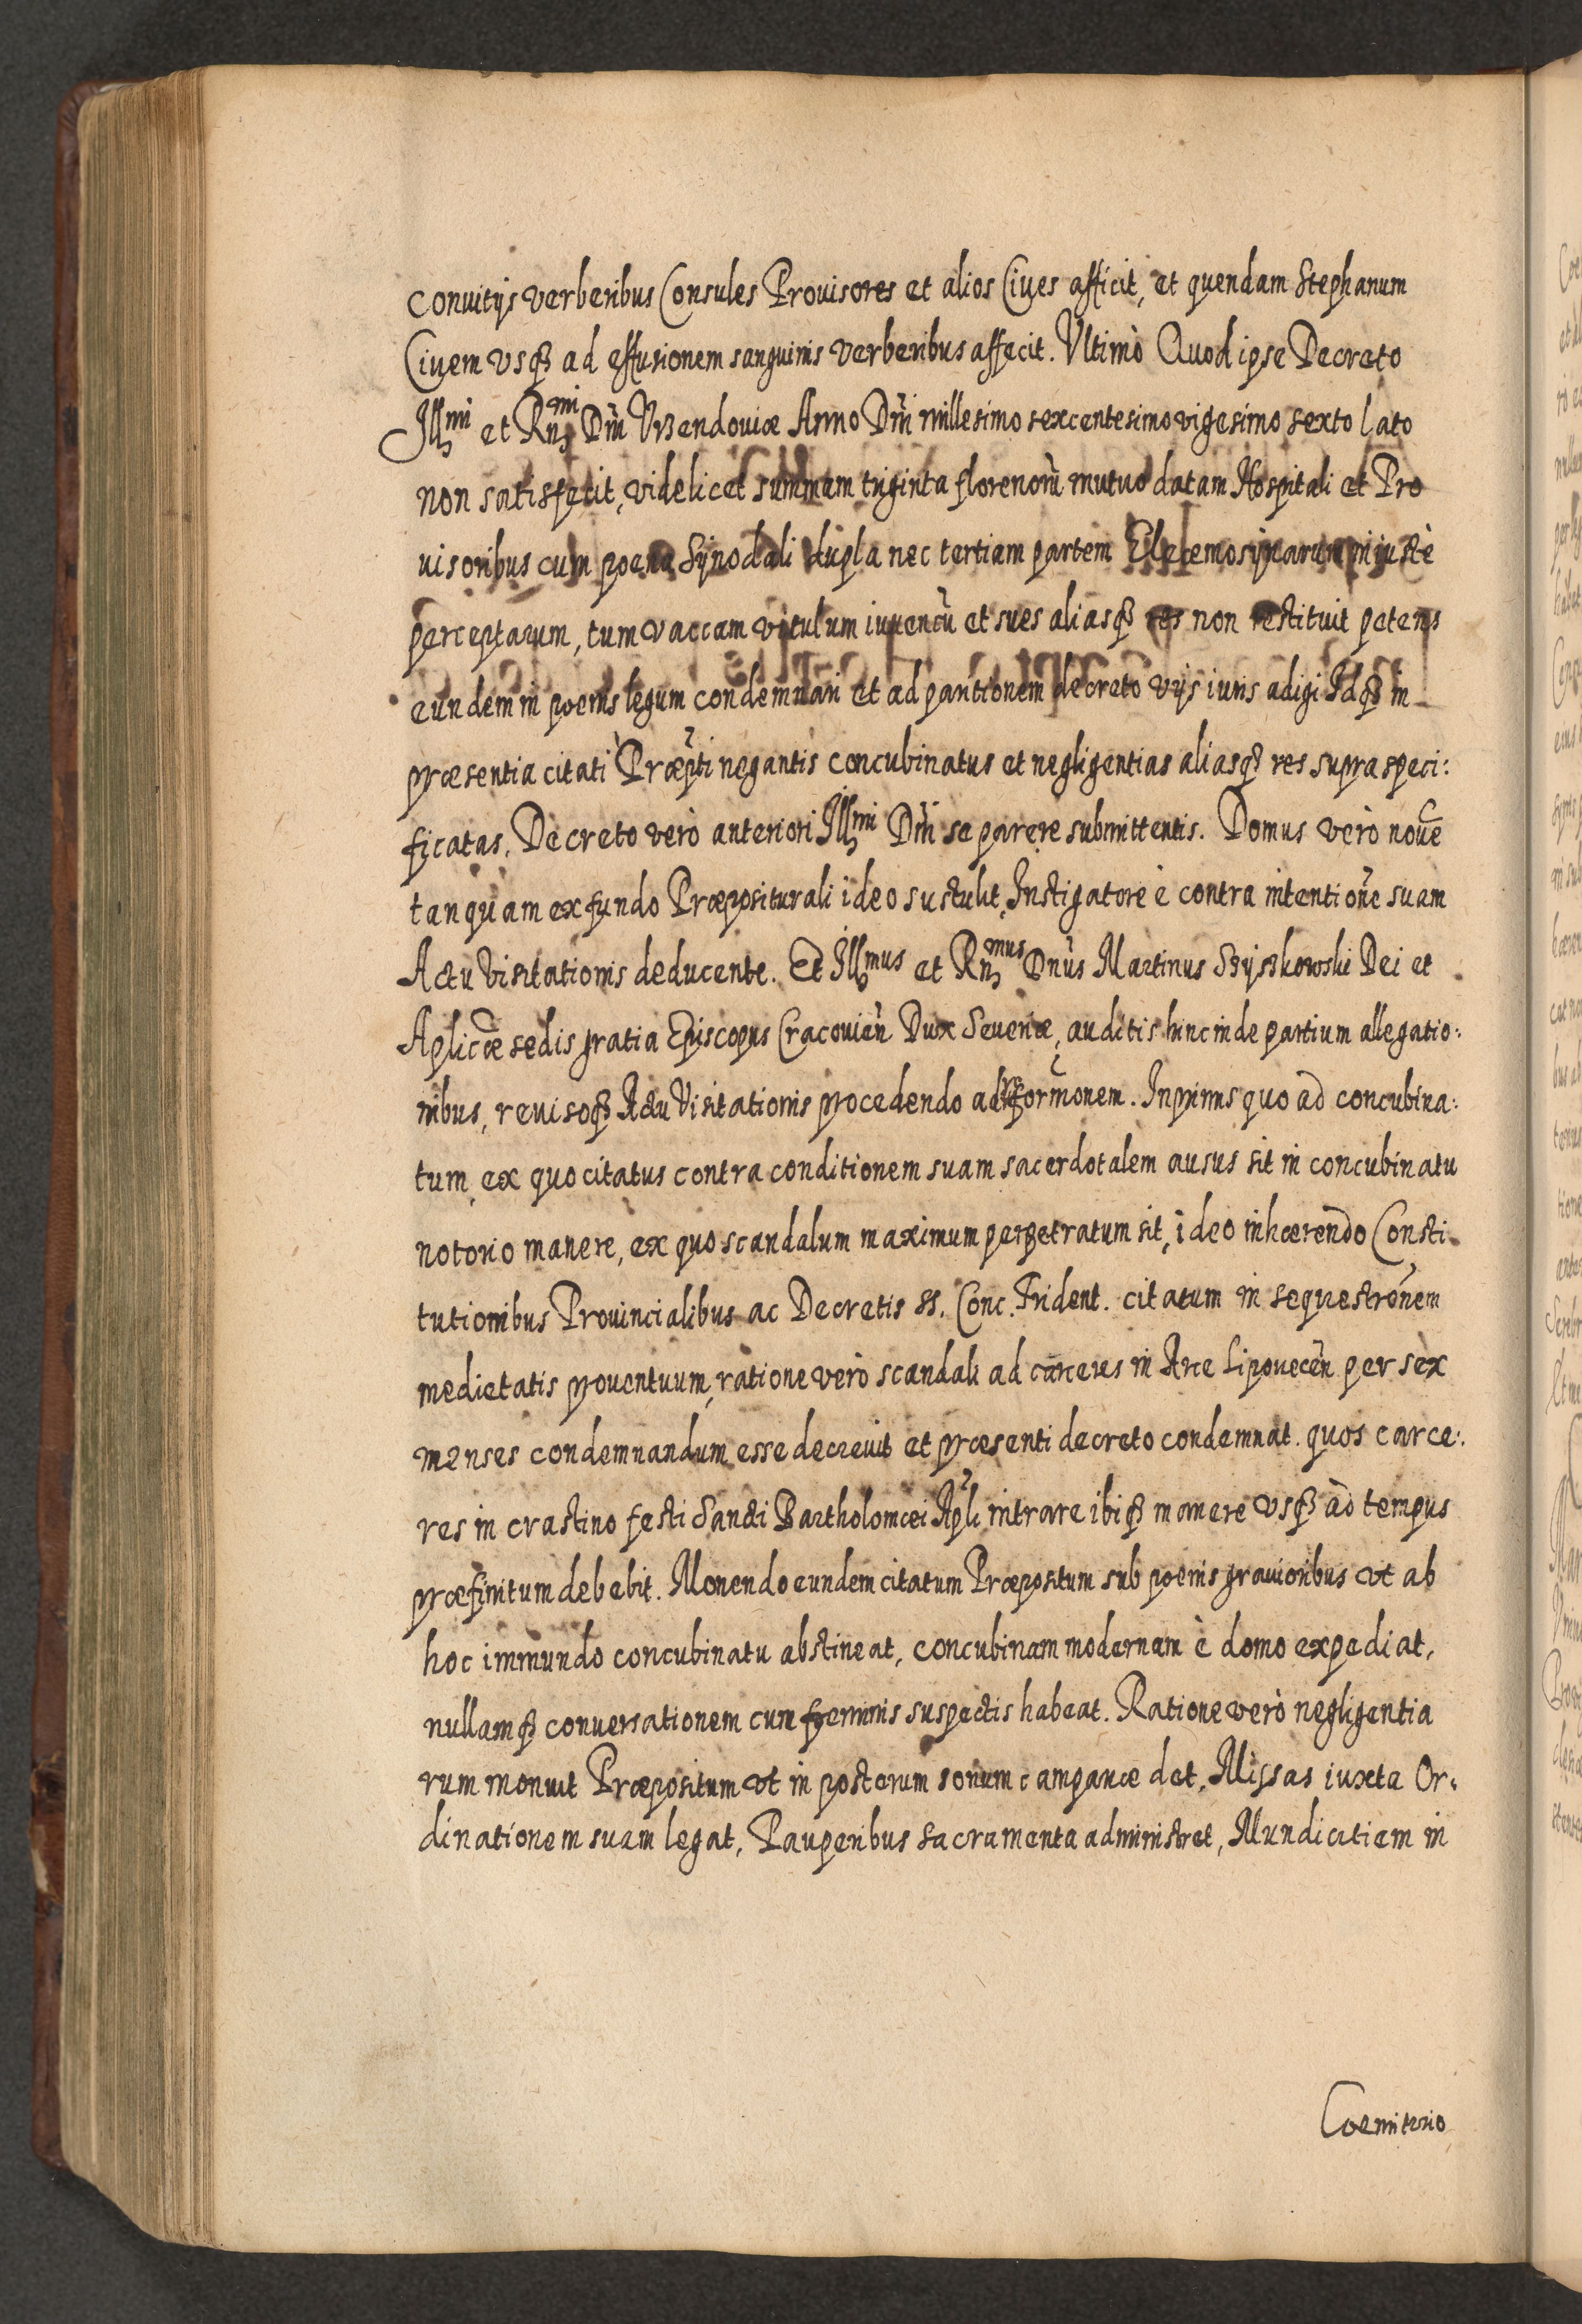 convitijs verberibus Consules Provisores et alios Cives afficit, et quendam Stephanum
Civem vsq3 ad effusionem sanguinis verberibus affecit. Vltimò Quod ipse Decreto
Illmi et Rnmi Dni Vrzendoviæ Anno Dni millesimo sexcentesimo vigesimo sexto lato
non satisfecit, videlicet summam triginta florenorũ mutuo datam Hospitali et Pro
uisoribus cum poena Synodali dupla nec tertiam partem Eleemosynarum iniustè
perceptarum, tum vaccam vitulum iuvencũ et sues aliasq3 res non restituit petens
eundem in poenis legum condemnari et ad paritionem decreto vijs iuris adigi Idq3 in
præsentia citati Præpti negantis concubinatus et negligentias aliasq3 res supra speci:
ficatas. Decreto verò anteriori Illmi Dni se parere submittentis. Domus verò novẽ
tanquam ex fundo Præpositurali ideo sustulit, Instigatore è contra intentionẽ suam
Actu Visitationis deducente. Et Illmus et Rnmus Dnus Martinus Szyszkowski Dei et
Aplicæ sedis gratia Episcopus Cracovieñ Dux Severiæ, auditis hinc inde partium allegatio:
nibus, revisoq3 Actu Visitationis procedendo ad reformonem. Inprimis quo ad concubina:
tum, ex quo citatus contra conditionem suam sacerdotalem ausus sit in concubinatu
notorio manere, ex quo scandalum maximum perpetratum sit, ideo inhærendo Consti
tutionibus Provincialibus ac Decretis SS. Conc. Trident. citatum in sequestronem
medietatis proventuum, ratione verò scandali ad carceres in Arce Lipovecen per sex
menses condemnandum esse decrevit et præsenti decreto condemnat. quos carce:
res in crastino festi Sancti Bartholomæi Apli intrare ibiq3 manere vsq3 ad tempus
præfinitum debebit. Monendo eundem citatum Præpositum sub poenis gravioribus vt ab
hoc immundo concubinatu abstineat, concubinam modernam è domo expediat,
nullamq3 conversationem cum fæminis suspectis habeat. Ratione verò negligentia
rum monuit Præpositum vt in posterum sonum campanæ det, Missas iuxta Or:
dinationem suam legat, Pauperibus sacramenta administret, Mundicitiem in
Coemiterio